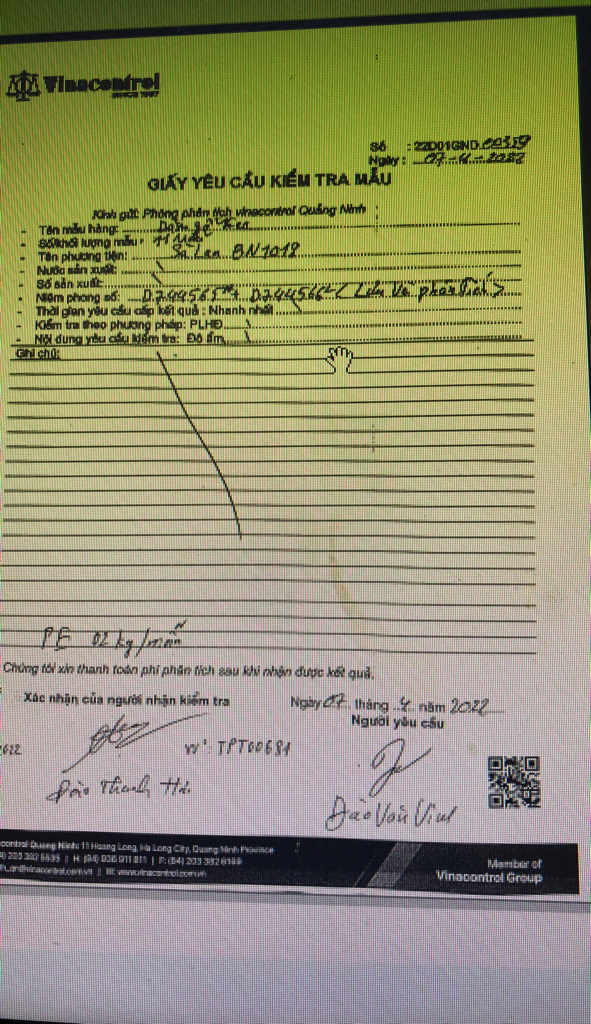 Vinacontrol
SINCE 1957
Số : 22D01GND.00359
Ngày : 07-4-2022
GIẤY YÊU CẦU KIỂM TRA MẪU
Kính gửi: Phòng phân tích vinacontrol Quảng Ninh
- Tên mẫu hàng: Dăm gỗ Keo
- Số/khối lượng mẫu: 11 Mẫu
- Tên phương tiện: Sà Lan BN1018
- Nước sản xuất:
- Số sản xuất:
- Niêm phong số: D.744565 + D.744566 < Lưu Và phân tích >
- Thời gian yêu cầu cấp kết quả : Nhanh nhất
- Kiểm tra theo phương pháp: PLHĐ
- Nội dung yêu cầu kiểm tra: Độ ẩm
Ghi chú:
PE 02 kg/mẫu
Chúng tôi xin thanh toán phí phân tích sau khi nhận được kết quả.
Xác nhận của người nhận kiểm tra
Ngày 07 tháng 4 năm 2022
Người yêu cầu
2622
N°: TPT00681
Đào Thanh Hải
Đào Văn Vinh
control Quang Ninh: 11 Hoang Long, Ha Long City, Quang Ninh Province
) 203 382 6635 || H: (84) 936 911 811 || F: (84) 203 382 6169
.qn@vinacontrol.com.vn || W: www.vinacontrol.com.vn
Member of
Vinacontrol Group